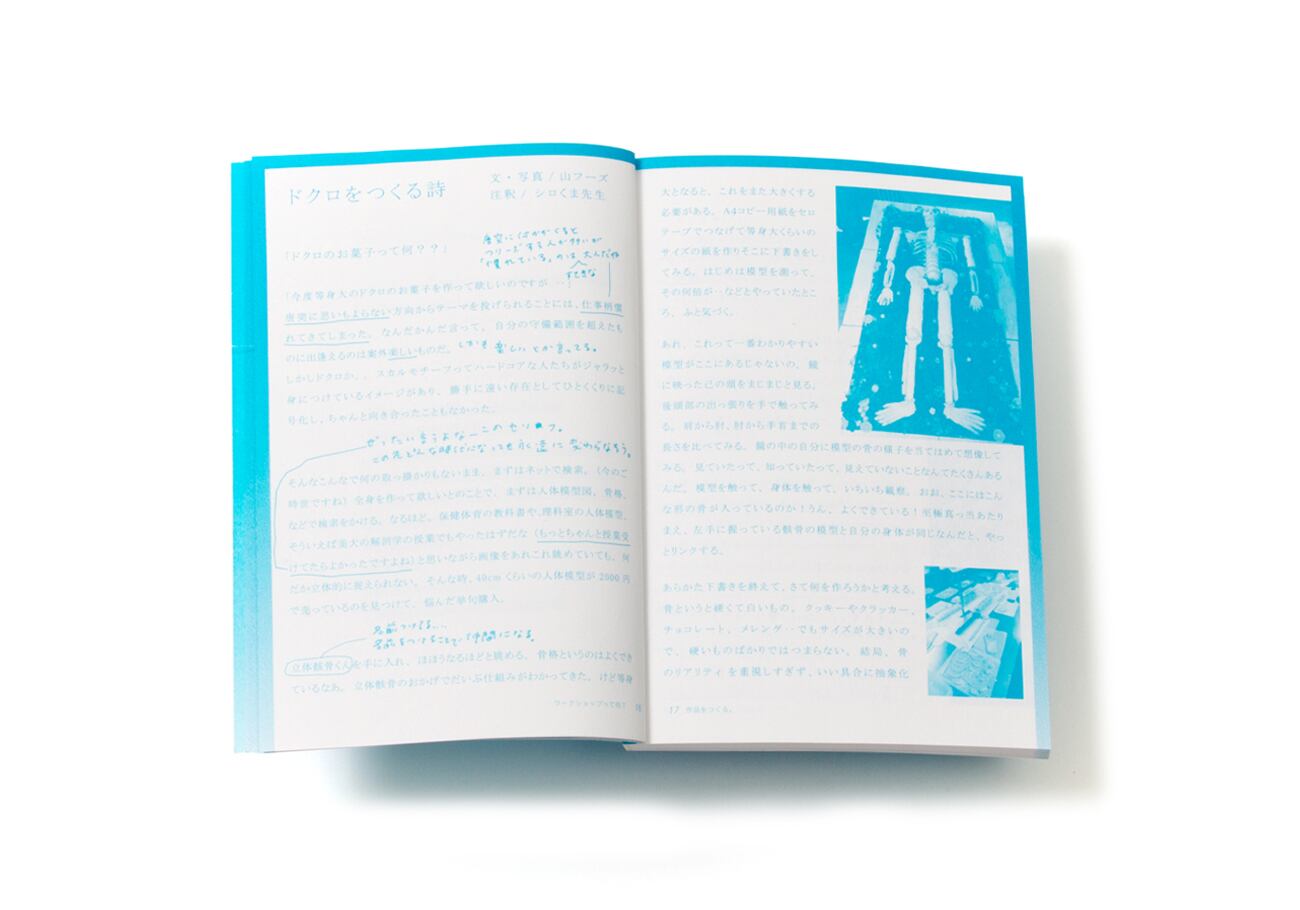 ドクロをつくる詩
文・写真 / 山フーズ
注釈 / シロくま先生
「ドクロのお菓子って何？？」
唐突に何かがくると
フリーズする人が多いが
「慣れている」のは大人だね
すてきな
「今度等身大のドクロのお菓子を作って欲しいのですが‥」
唐突に思いもよらない方向からテーマを投げられることには、仕事柄慣
れてきてしまった。なんだかんだ言って、自分の守備範囲を超えたも
のに出逢えるのは案外楽しいものだ。
しかも楽しいとか言ってる。
しかしドクロか、、スカルモチーフってハードコアな人たちがジャラッと
身につけているイメージがあり、勝手に遠い存在としてひとくくりに記
号化し、ちゃんと向き合ったこともなかった。
ぜったい言うよなーこのセリフ。
この先どんな時代になっても永遠に変わらなそう。
そんなこんなで何の取っ掛かりもないまま、まずはネットで検索。（今のご
時世ですね）全身を作って欲しいとのことで、まずは人体模型図、骨格、
などで検索をかける。なるほど。保健体育の教科書や、理科室の人体模型、
そういえば美大の解剖学の授業でもやったはずだな（もっとちゃんと授業受
けてたらよかったですよね）と思いながら画像をあれこれ眺めていても、何
だか立体的に捉えられない。そんな時、40cmくらいの人体模型が2800円
で売っているのを見つけて、悩んだ挙句購入。
名前つけてる…
名前をつけることで仲間になる。
立体骸骨くんを手に入れ、ほほうなるほどと眺める。骨格というのはよくでき
ているなあ。立体骸骨のおかげでだいぶ仕組みがわかってきた。けど等身
ワークショップって何？ 16
大となると、これをまた大きくする
必要がある。A4コピー用紙をセロ
テープでつなげて等身大くらいの
サイズの紙を作りそこに下書きをし
てみる。はじめは模型を測って、
その何倍が‥などとやっていたとこ
ろ、ふと気づく。
あれ、これって一番わかりやすい
模型がここにあるじゃないの。鏡
に映った己の顔をまじまじと見る。
後頭部の出っ張りを手で触ってみ
る。肩から肘、肘から手首までの
長さを比べてみる。鏡の中の自分に模型の骨の様子を当てはめて想像して
みる。見ていたって、知っていたって、見えていないことなんてたくさんある
んだ。模型を触って、身体を触って、いちいち観察。おお、ここにはこん
な形の骨が入っているのか！うん、よくできている！至極真っ当あたり
まえ、左手に握っている骸骨の模型と自分の身体が同じなんだと、やっ
とリンクする。
あらかた下書きを終えて、さて何を作ろうかと考える。
骨というと硬くて白いもの。クッキーやクラッカー、
チョコレート、メレンゲ‥でもサイズが大きいの
で、硬いものばかりではつまらない。結局、骨
のリアリティを重視しすぎず、いい具合に抽象化
17 作品をつくる。